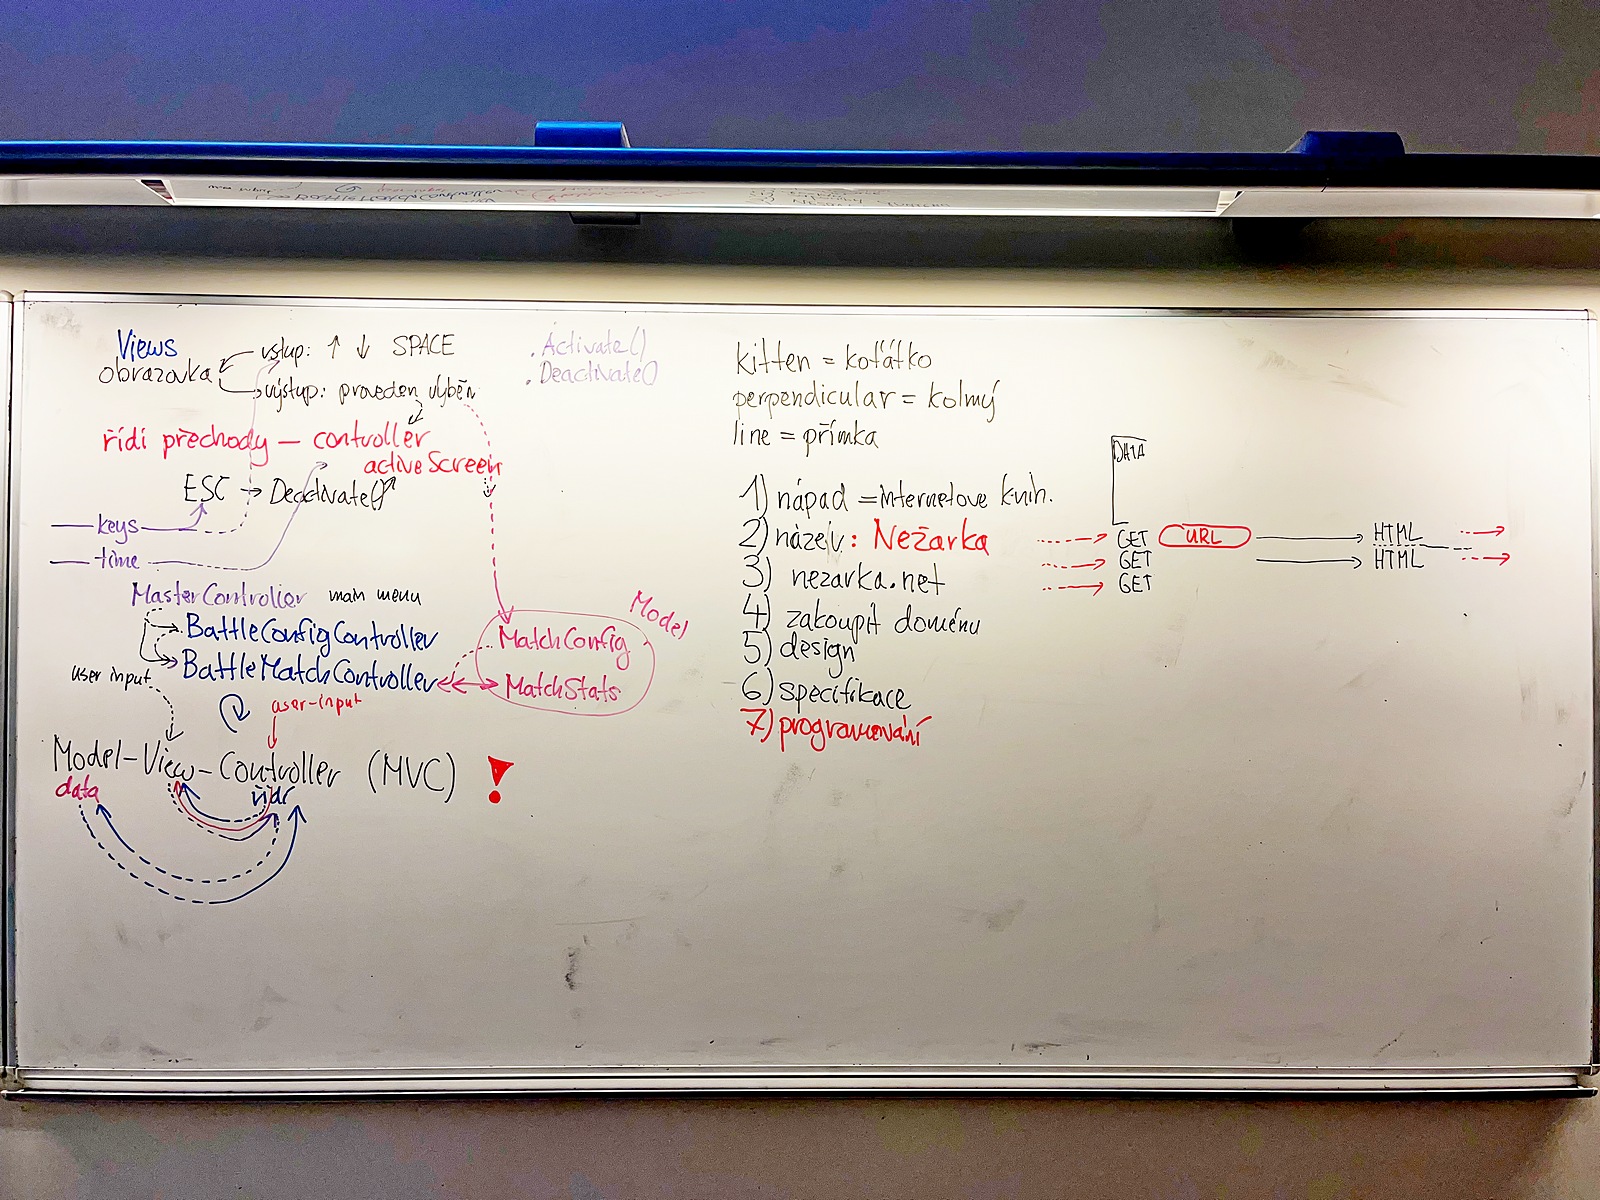 Views
obrazovka
vstup: ↑ ↓ SPACE
výstup: proveden výběr
řídí přechody – controller
activeScreen
ESC → Deactivate()
keys
time
MasterController main menu
BattleConfigController
BattleMatchController
user input
user-input
Model-View-Controller (MVC) !
data
řídí
.Activate()
.Deactivate()
Model
MatchConfig
MatchStats
kitten = koťátko
perpendicular = kolmý
line = přímka
1) nápad = Internetove knih.
2) název: Nežárka
3) nezarka.net
4) zakoupit doménu
5) design
6) specifikace
7) programování
DATA
GET URL → HTML
GET → HTML
GET